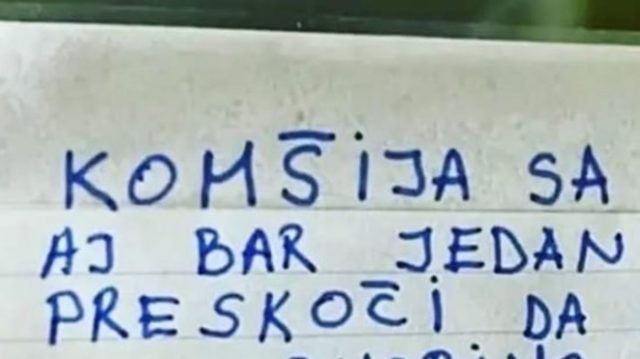 KOMŠIJA SA
AJ BAR JEDAN
PRESKOČI DA